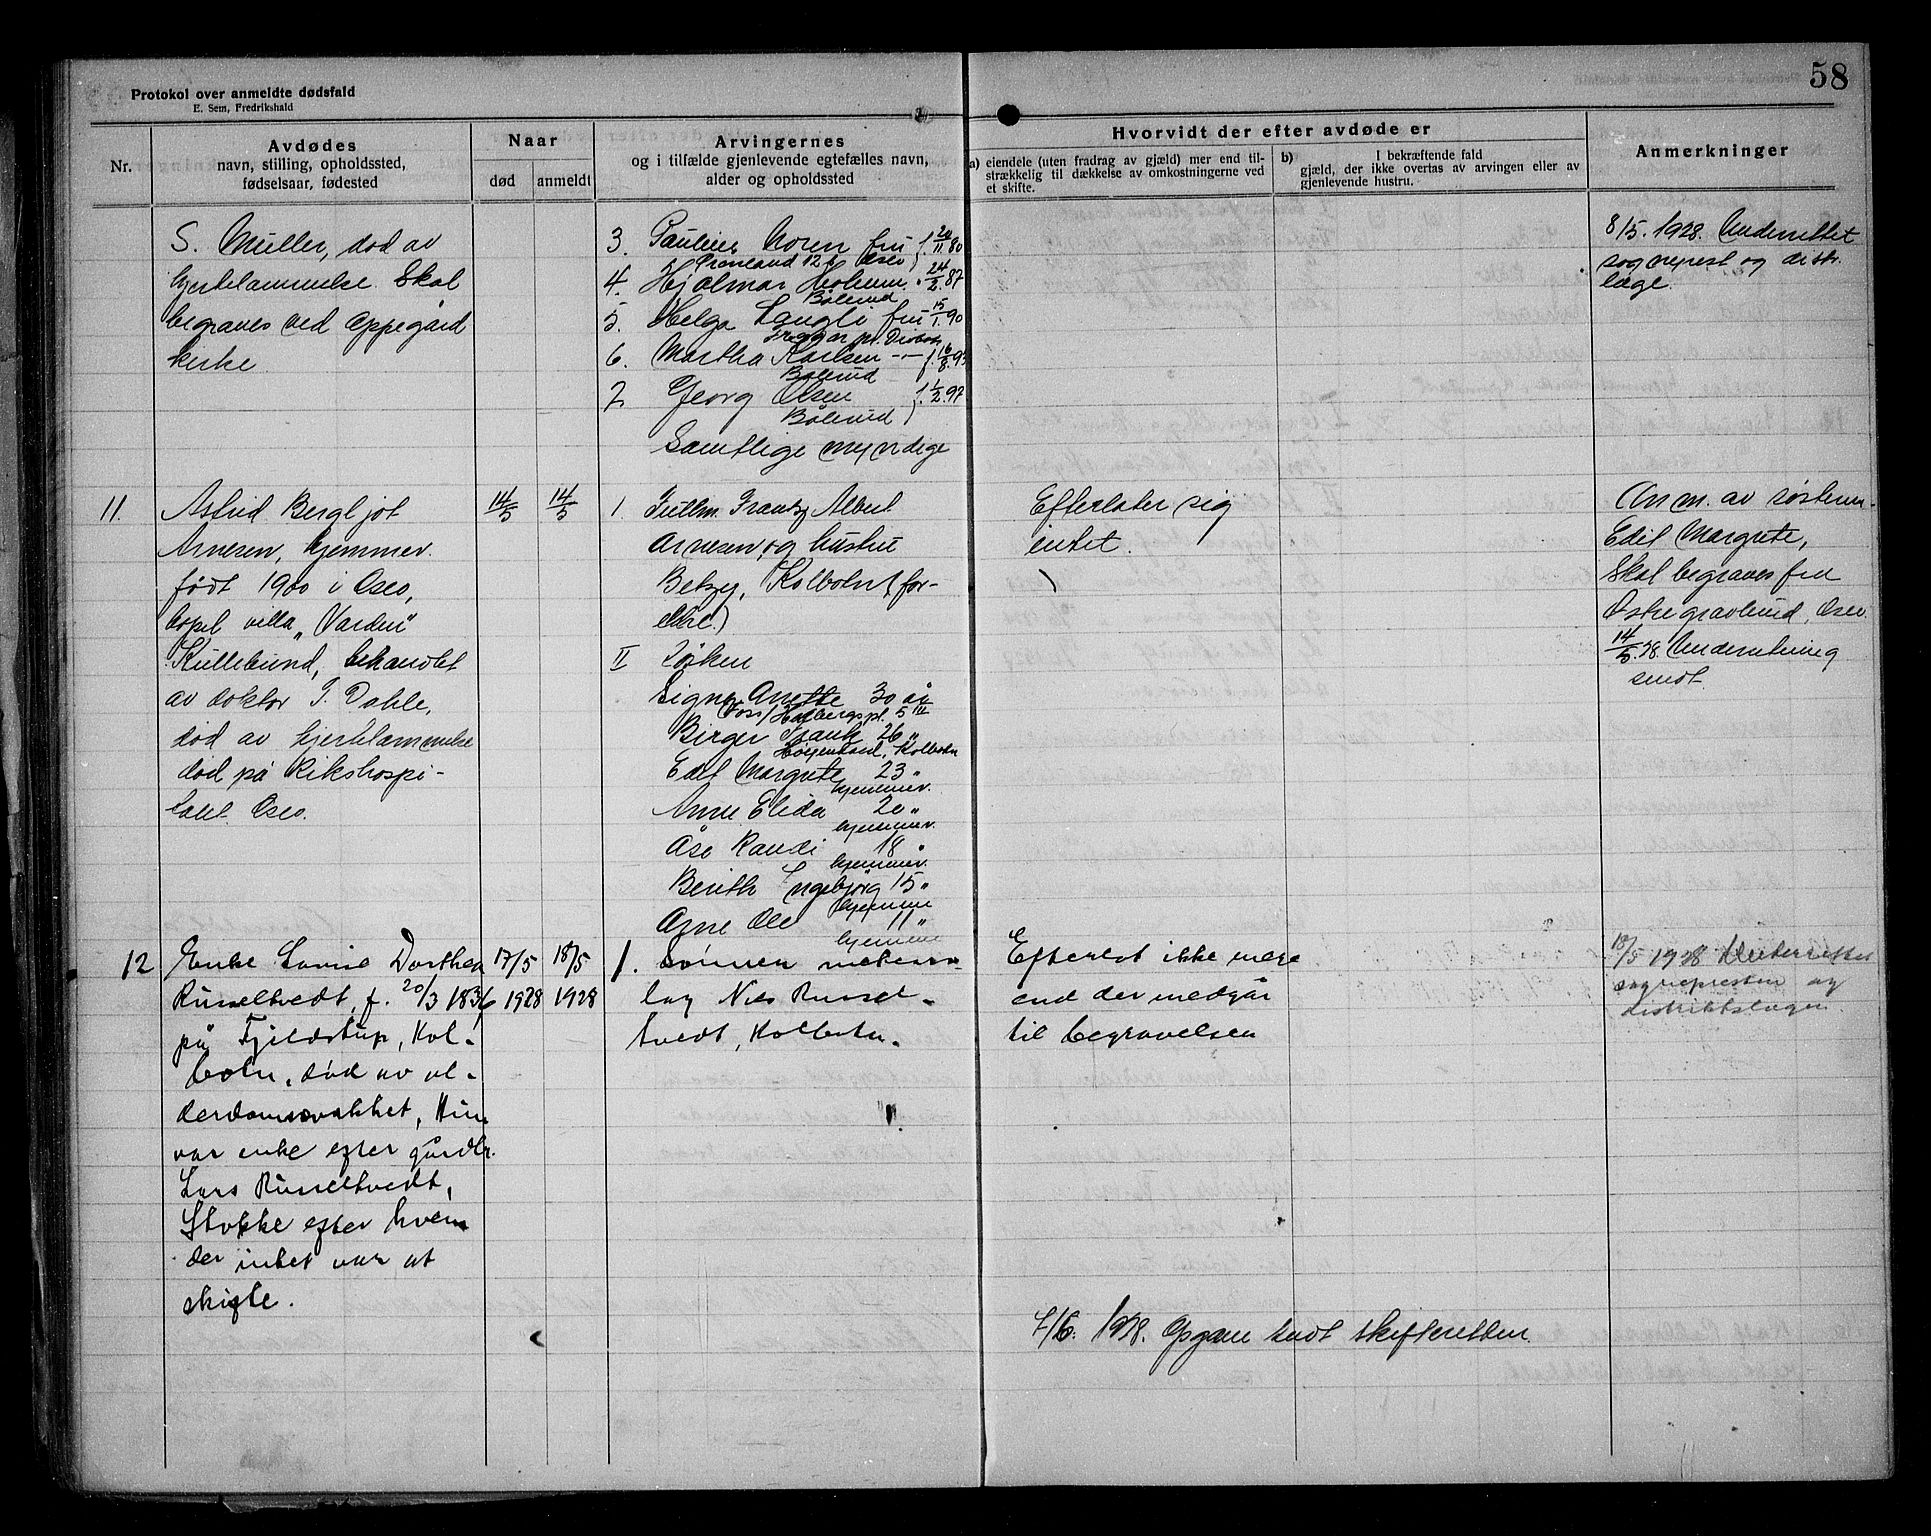 58
Protokol over anmeldte dødsfald
E. Sem, Fredrikshald
Nr.
Avdødes
navn, stilling, opholdssted,
fødselsaar, fødested
Naar
død
anmeldt
Arvingernes
og i tilfælde gjenlevende egtefælles navn,
alder og opholdssted
Hvorvidt der efter avdøde er
a) eiendele (uten fradrag av gjæld) mer end til-
strækkelig til dækkelse av omkostningerne ved
et skifte.
b) I bekræftende fald
gjæld, der ikke overtas av arvingen eller av
gjenlevende hustru.
Anmerkninger
S. Müller, død av
hjertelammelse. Skal
begraves ved Oppegård
kirke
3. Pauline Noren fru f. 20/11 80
Grønland 12 Oslo
4. Hjalmar Holum " 24/2 87
Bålerud
5. Helga Langli fru 15/1 90
pr. Drøbak
6. Martha Karlsen -"- f. 16/8 93
Bålerud
7 Georg Olsen f. 1/2 97
Bålerud
Samtlige myndige
8/5. 1928. Underrettet
sogneprest og distr.
læge.
11.
Astrid Bergljot
Arnesen, hjemmev.
født 1900 i Oslo,
bopel villa "Varden"
Kullebund, behandlet
av doktor J. Dahle,
død av hjertelammelse
død på Rikshospi-
talet Oslo.
14/5
14/5
1. Frantz Albert
Arnesen, og hustru
Betzy, Kolbotn (for-
eldre)
II Søsken
Signe Anette 30 år
Voss / Holbergspl. 5 III
Birger Frank 26 "
Kolbotn
Edit Margrete 23 "
hjemmev.
Anne Elida 20 "
hjemmev.
Åse Randi 18 "
hjemmev.
Berith Ingebjørg 15 "
hjemme
Arne Ole 11 "
hjemme
Efterlater sig
intet.
Anm. av søsteren
Edit Margrete,
Skal begraves fra
Østre gravlund, Oslo.
14/5. 28. Underretning
sendt.
12
Enke Lovise Dorthea
Russeltvedt, f. 20/3 1836
på Fjeldstup, Kol-
botn, død av al-
derdomssvakhet, Hun
var enke efter gårdbr.
Lars Russeltvedt,
Stokke efter hvem
der intet var at
skifte.
17/5
1928
18/5
1928
1. Sønnen
Nils Russel-
tvedt, Kolbotn.
Efterlot ikke mere
end der medgår
til begravelsen
18/5 1928 Underrettet
sognepresten og
distriktslægen.
7/6. 1928. Opgave sendt skifteretten.